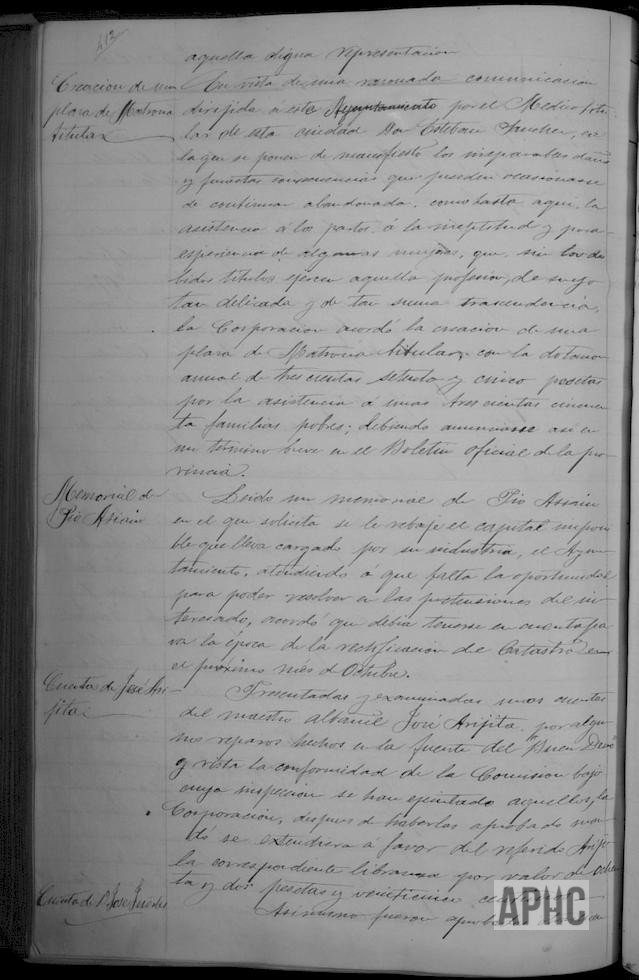 412
aquella digna representacion
Creacion de una
plaza de Matrona
titular
En vista de una razonada comunicacion
dirijida á este Ayuntamiento por el Medico titu-
lar de esta ciudad Don Esteban Sanchez, en
la que se ponen de manifiesto los irreparables daños
y funestas consecuencias que pueden ocasionarse
de continuar abandonada, como hasta aqui, la
asistencia á los partos, á la ineptitud y poca
esperiencia de algunas mujeres, que, sin los de-
bidos titulos ejercen aquella profesion, de suyo
tan delicada y de tan suma trascendencia,
la Corporacion acordó la creacion de una
plaza de Matrona titular, con la dotacion
anual de trescientas setenta y cinco pesetas
por la asistencia á unas trescientas cincuen-
ta familias pobres; debiendo anunciarse asi en
un termino breve en el Boletin oficial de la pro-
vincia.
Memorial de
Pio Asiain
Leido un memorial de Pio Assiain
en el que solicita se le rebaje el capital imponi-
ble que lleva cargado por su industria, el Ayun-
tamiento, atendiendo á que falta la oportunidad
para poder resolver en las pretensiones del in-
teresado, acordó que debia tenerse en cuenta pa-
ra la época de la rectificacion de Catastro en
el próximo mes de Octubre.
Cuenta de José Ari-
jita
Presentadas y examinadas unas cuentas
del maestro Albañil José Arijita, por algu-
nos reparos hechos en la fuente del "Buen Deseo"
y vista la conformidad de la Comision bajo
cuya inspeccion se han ejecutado aquellos, la
Corporacion, despues de haberlas aprobado man-
dó se extendiera a favor del referido Ariji-
la correspondiente libranza por valor de ochen-
ta y dos pesetas y veinticinco centimos
Cuenta de D. José
Asimismo fueron aprobadas
APHC